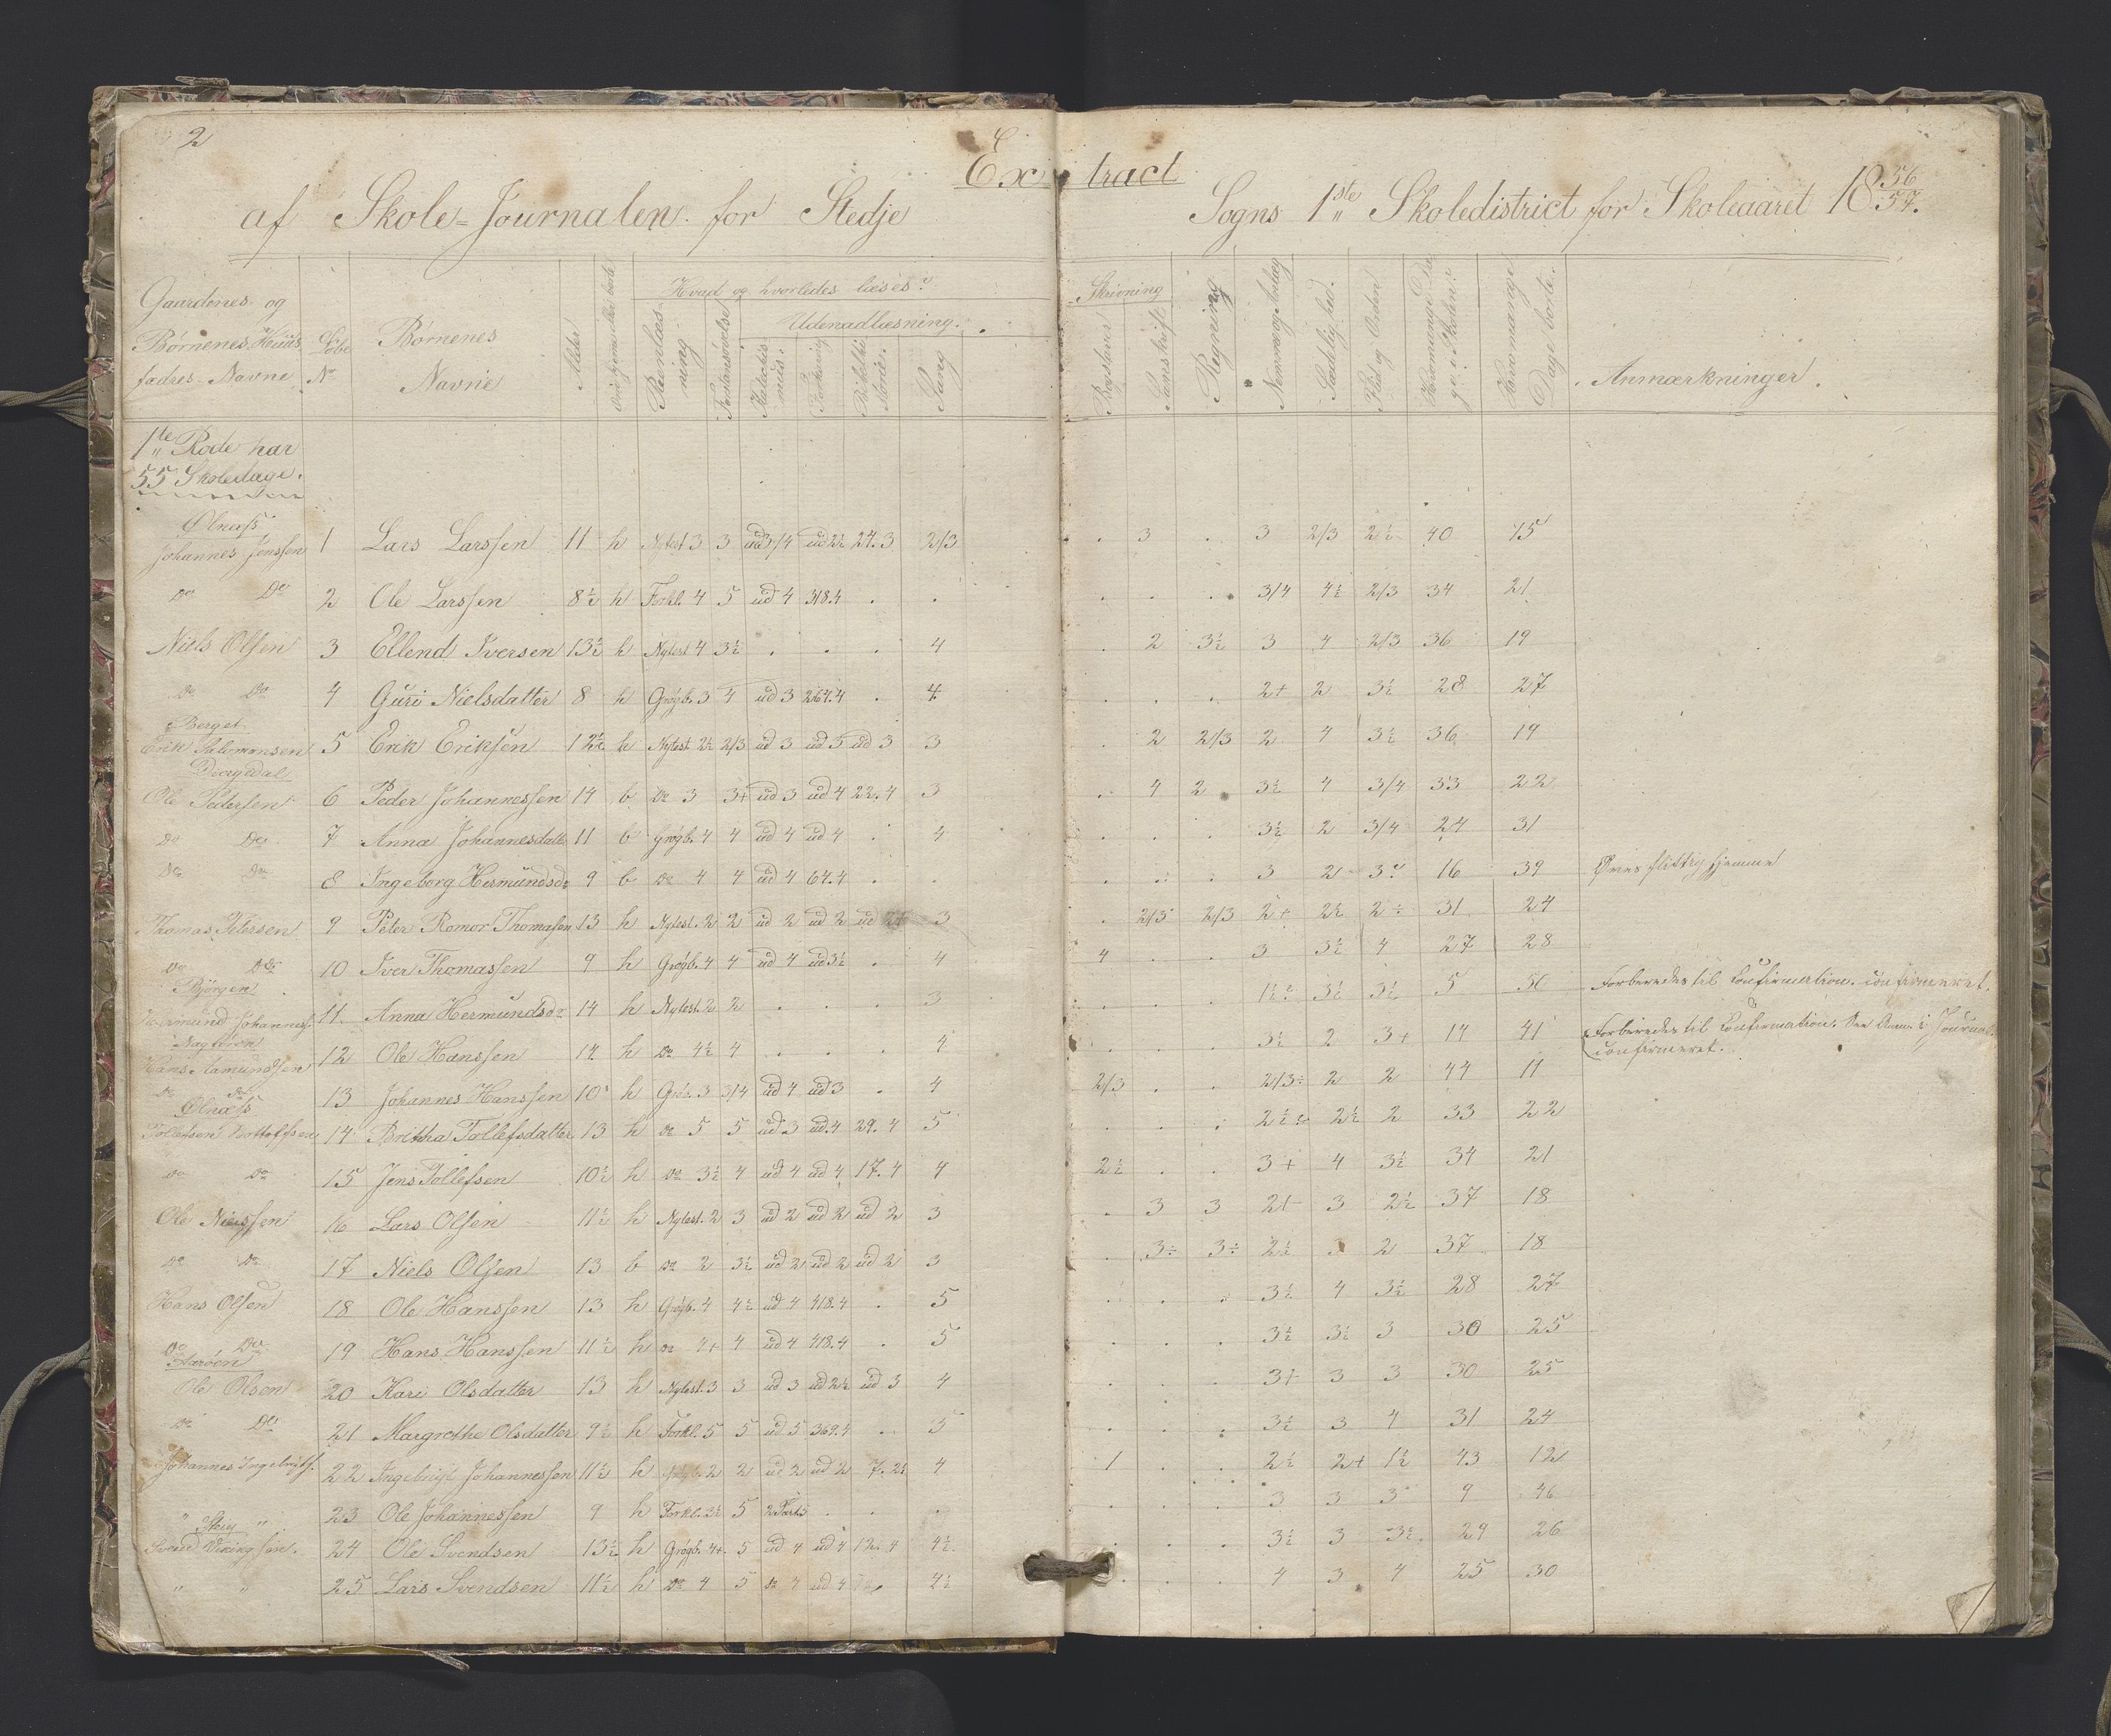 2
Extract
af Skole-Journalen for Stedje Sogns 1ste Skoledistrict for Skoleaaret 18 56/57.
Gaardenes og Børnenes Huus fædres Navne
Løbe No
Børnenes Navne
Alder
Hvad og hvorledes læses?
Reenlæsning
Forstandsøvelse
Udenadlæsning.
Katechismus
Forklaring
Bibelhistorie
Sang
Skrivning
Bogstaver
Samskrift
Regning
Nemme og Anlæg
Sædelighed.
Flid og Orden
Hvormange Dage i Skolen?
Hvormange Dage borte.
Anmærkninger.
1ste Rode har
55 Skoledage.
Ølnæss
Johannes Jenssen 1 Lars Larssen 11 h Nytest 3 3 ud 3/4 ud 2½ 24.3 2/3 . 3 . 3 2/3 2½ 40 15
Do Do 2 Ole Larssen 8½ h Forkl. 4 5 ud 4 318.4 . . . . . 3/4 4½ 2/3 34 21
Niels Olsen 3 Ellend Iversen 13½ h Nytest 4 3½ . . . 4 . 2 3½ 3 4 2/3 36 19
Do Do 4 Guri Nielsdatter 8 h Grøgb. 3 4 ud 3 267.4 . 4 . . . 2+ 2 3½ 28 27
Berget
Erik Salomonsen 5 Erik Eriksen 12½ h Nytest. 2½ 2/3 ud 3 ud 3 ud 3 3 . 2 2/3 2 4 3½ 36 19
Ole Pedersen 6 Peder Johannessen 14 b Do 3 3+ ud 3 ud 4 22.4 3 . 4 2 3½ 4 3/4 33 22
Do Do 7 Anna Johannesdatter 11 b Grøgb. 4 4 ud 4 ud 4 . 4 . . . 3½ 2 3/4 24 31
Do Do 8 Ingeborg Hermundsdr 9 b Do 4 4 ud 4 64.4 . . . . . 3 2 3 16 39 Øves flittig hjemme
Thomas Petersen 9 Peter Romor Thomassen 13 h Nytest. 2 2 ud 2 ud 2 ud 3 . 2/3 2/3 2+ 2½ 2÷ 31 24
Do Do 10 Iver Thomassen 9 h Grøgb. 4 4 ud 4 ud 3½ . 4 4 . . 3 3½ 4 27 28
Bjørgen
Hermund Johanness. 11 Anna Hermundsdr 14 h Nytest. 2 2 . . . 3 . . . 1½ 3½ 3½ 5 50 Forberedes til Confirmation. confirmeret.
Hans Aamundsen 12 Ole Hanssen 14 h Do 4½ 4 . . . 4 . . . 3½ 2 3+ 14 41 Forberedes til Confirmation. See Anm. i Journal.
confirmeret.
Do Do 13 Johannes Hanssen 10 h Grøgb. 3 3/4 ud 4 ud 3 . 4 2/3 . . 2/3÷ 2 2 44 11
Ølnæss
14 Brittha Tollefsdatter 13 h Do 5 5 ud 3 ud 4 29.4 5 . . . 2½ 2½ 2 33 22
Do Do 15 Jens Tollefsen 10½ h Do 3½ 4 ud 4 ud 4 17.4 4 2½ . . 3+ 4 3½ 34 21
Ole Nielssen 16 Lars Olsen 11½ h Nytest. 2 3 ud 2 ud 2 ud 2 3 . 3 3 2+ 3 2½ 37 18
Do Do 17 Niels Olsen 13 b Do 2 3½ ud 2 ud 2 ud 2 3 . 3÷ 3÷ 2½ 3 2 37 18
Hans Olsen 18 Ole Hanssen 13 h Grøgb. 4 4½ ud 4 418.4 . 5 . . . 3½ 4 3½ 28 27
Do Do 19 Hans Hanssen 11½ h Do 4+ 4 ud 4 418.4 . 5 . . . 3½ 3½ 3 30 25
Aarøen
Ole Olsen 20 Kari Olsdatter 13 h Nytest. 3 3 ud 3 ud 2½ ud 3 4 . . . 3+ 3 3 30 25
Do Do 21 Margrethe Olsdatter 9½ h Forkl. 5 5 ud 5 369.4 . 5 . . . 3½ 3 4 31 24
Johannes Ingebrigts. 22 Ingebrigt Johannessen 11½ h 2 2 ud 2 ud 2 7.2½ 4 1 . . 2½ 2+ 1½ 43 12
" " 23 Ole Johannessen 9 h Forkl. 3½ 5 . . . . . . 3 3 3 9 46
Svend Vikingsen. 24 Ole Svendsen 13½ h Grøgb. 4+ 5 ud 4 ud 4 12.4 4½ . . . 3½ 3 3½ 29 26
" " 25 Lars Svendsen 11½ h Do 4 5 Do 4 ud 4 4½ . . . 4 3 4 25 30